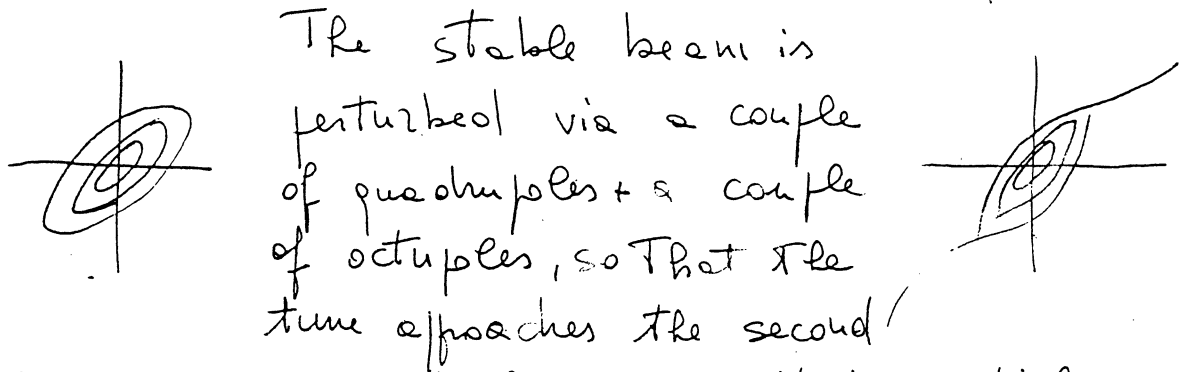 The stable beam is
perturbed via a couple
of quadrupoles + a couple
of octupoles, so that the
tune approaches the second